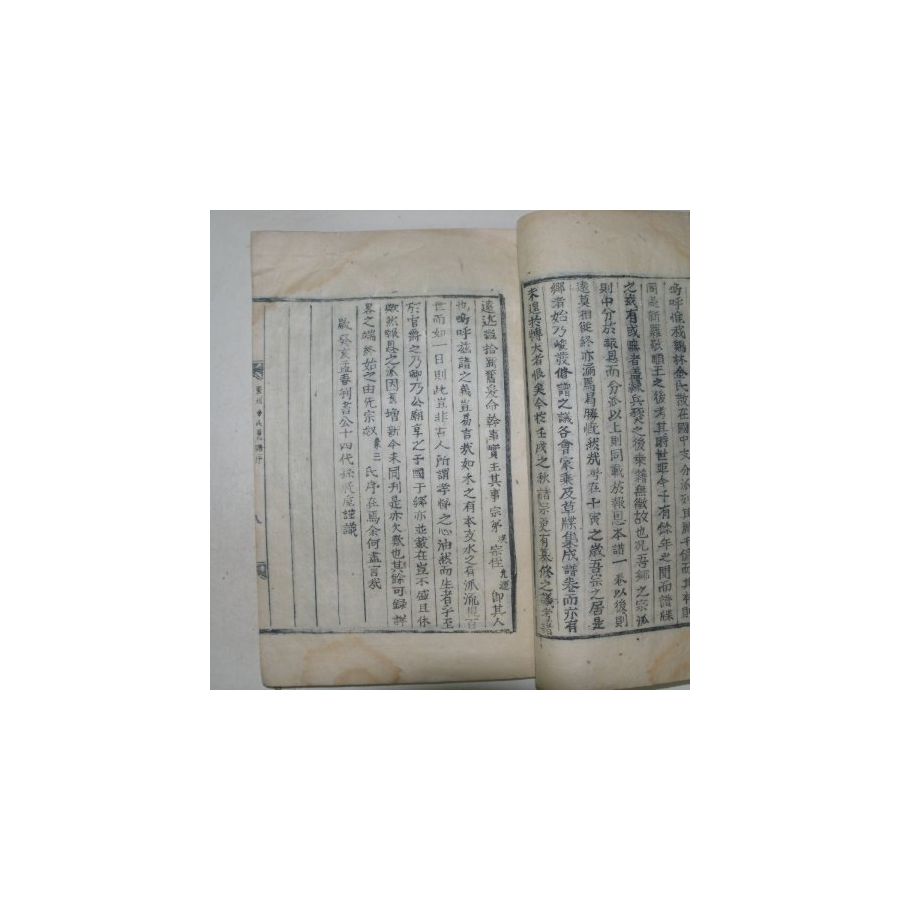 嗚呼惟我鷄林金氏散在國中支分派列
國是新羅敬順王之後矣其爵世距今千有餘年之間而譜牒
之或有或無者盖緣兵燹之後乘籍無徵故也况吾鄉之宗派
則中分於報恩而分派以上則同載於報恩本譜一卷以後則
遠莫相從終亦漏焉曷勝慨然哉粤在寅之歲吾宗之居是
鄉者始乃峻發修譜之議各會家乘及草牒集成譜卷而亦有
未遑於博大者惟矣今於壬戌之秋諸宗更有修之議者諸
遠近收拾舊爰命幹事實主其事宗弟漢宗侄先運即其人
也嗚呼玆譜之義豈易言哉如木之有本支水之有派流
世而如一日則此豈非古人所謂孝悌之心油然而生者乎至
於官爵之乃卿乃公廟享之于國于鄉亦並載在豈不盛且休
歟然報恩之派因舊增新今未同刊是亦欠歎也其餘可錄詳
畧之端終始之由先宗叔三氏序在焉余何盡言哉
歲癸亥孟春判書公十四代孫謹識